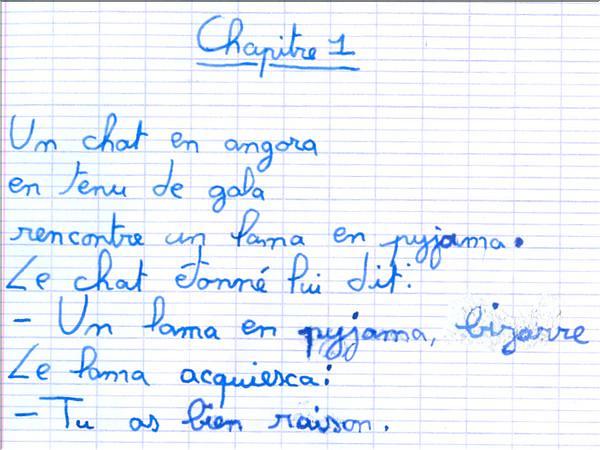 Chapitre 1
Un chat en angora
en tenu de gala
rencontre un lama en pyjama.
Le chat étonné lui dit:
- Un lama en pyjama, bizarre
Le lama acquiesca:
- Tu as bien raison.